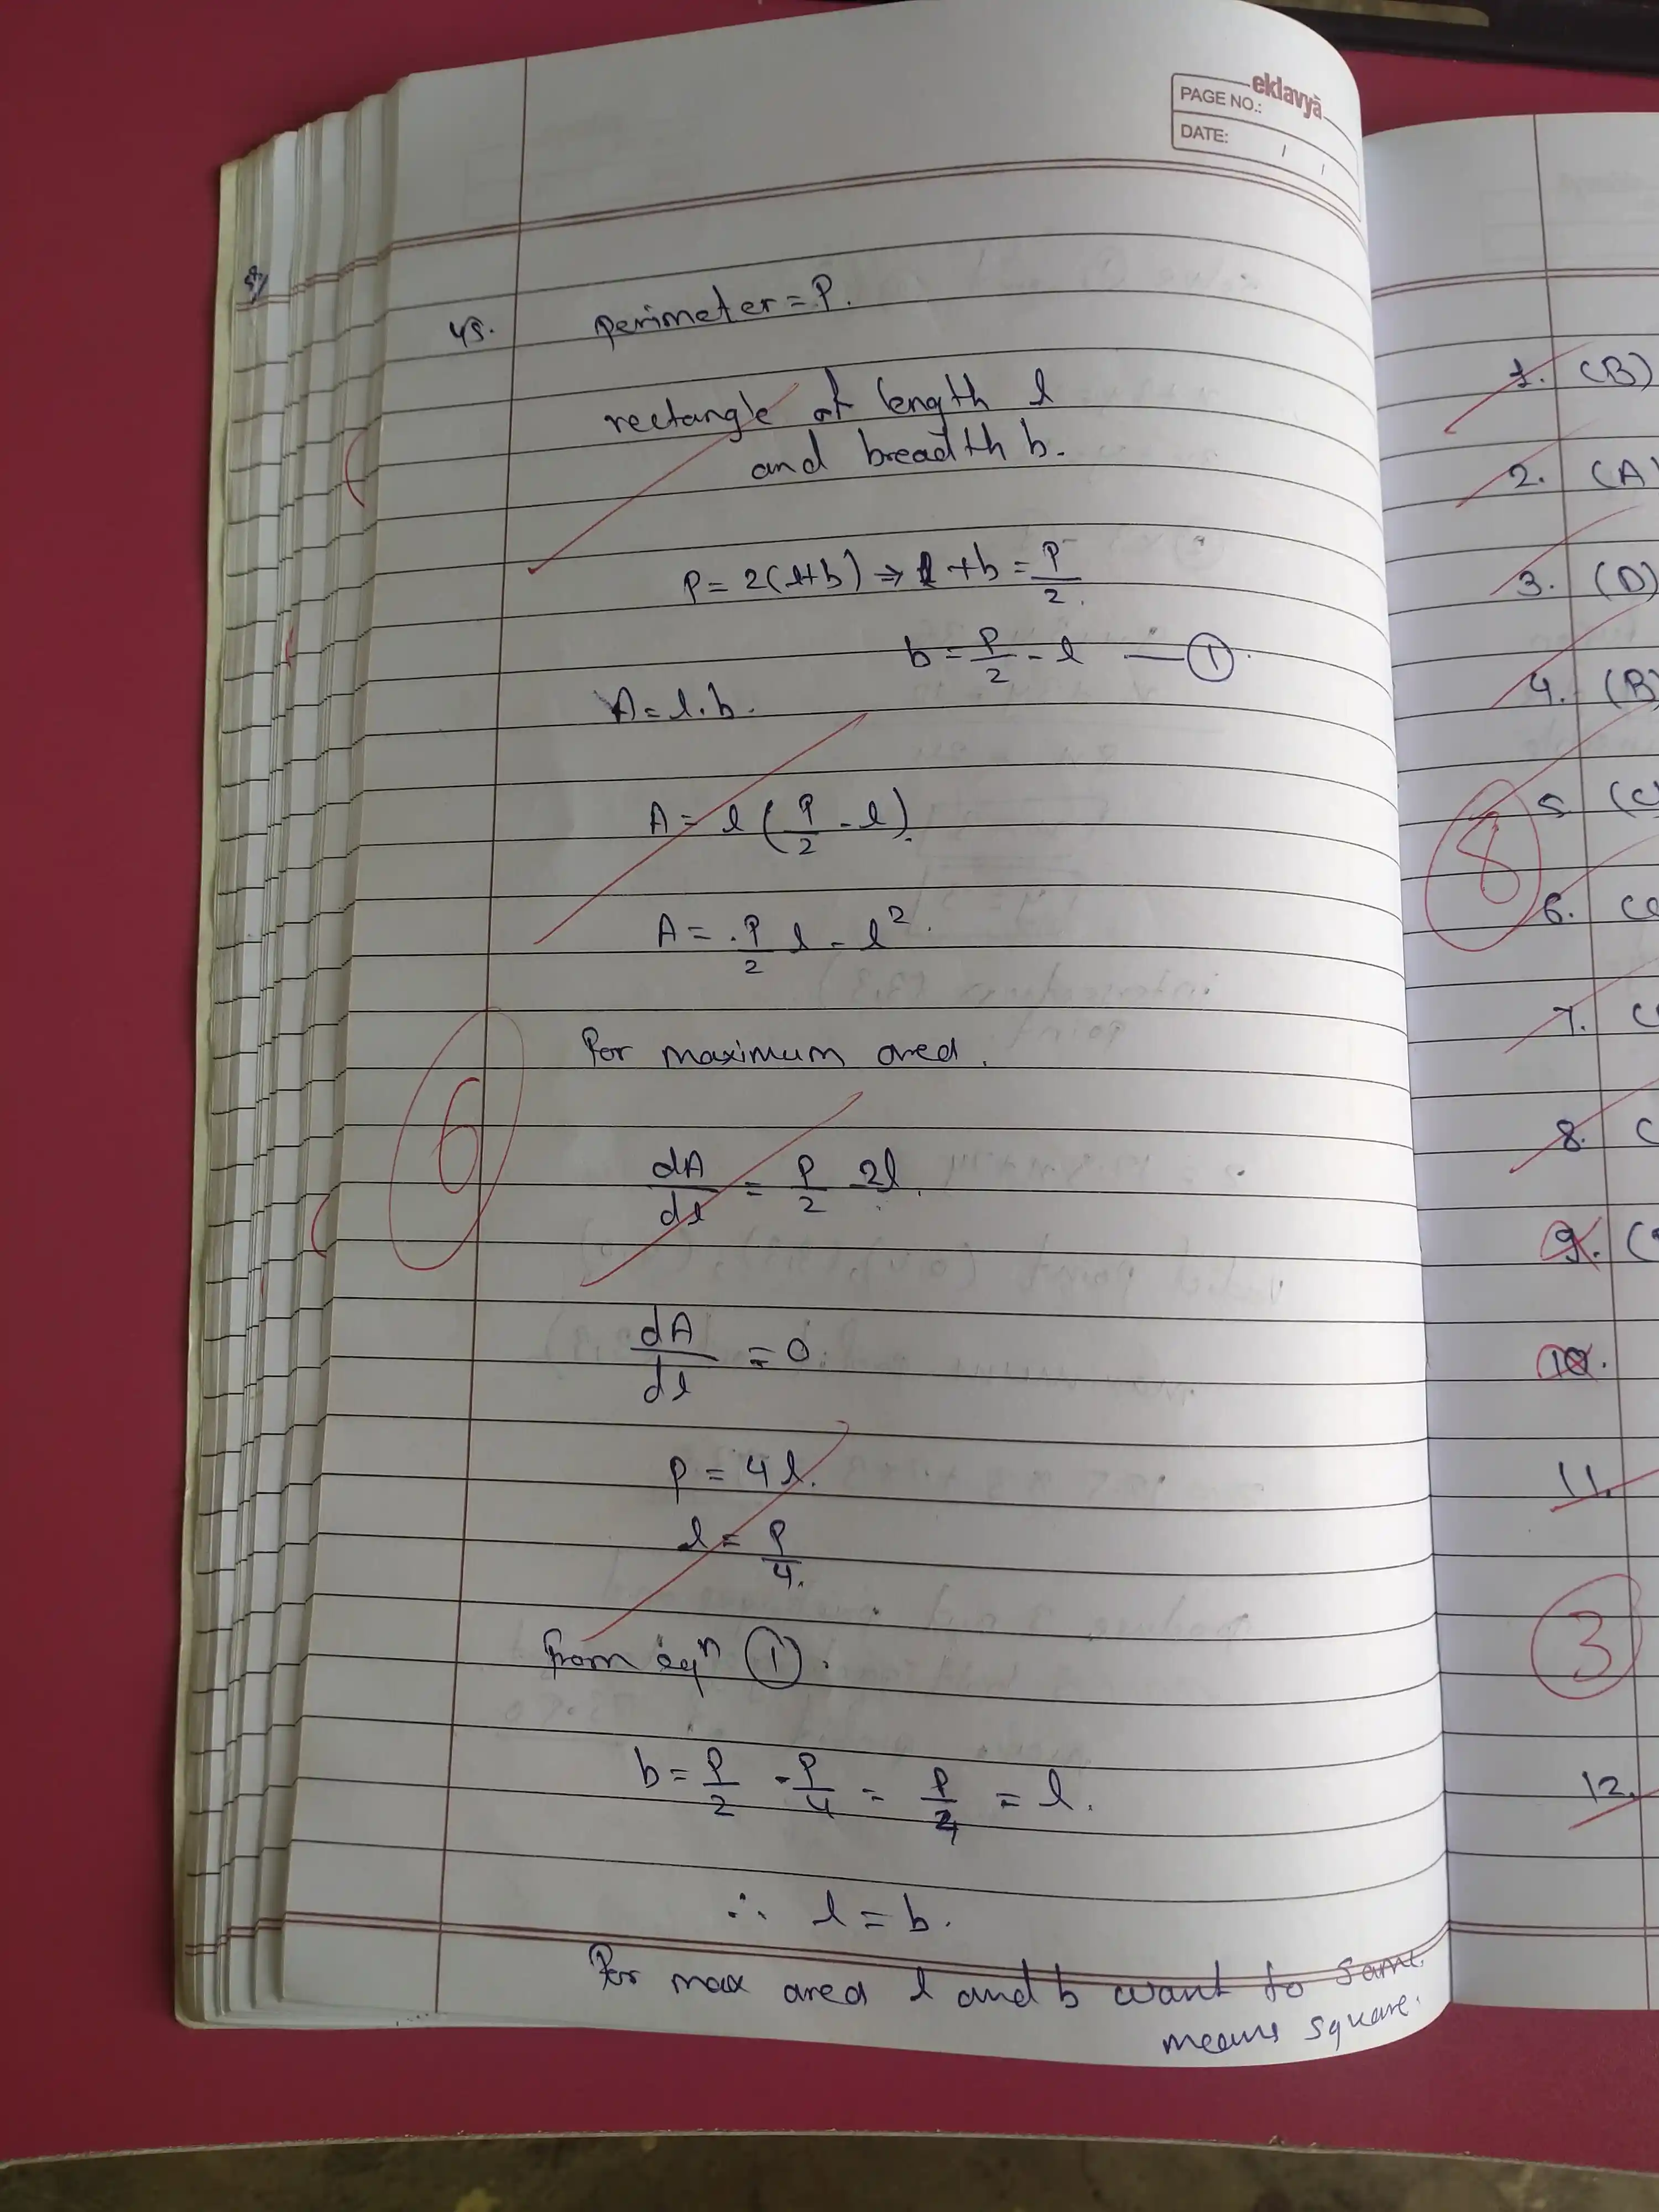 eklavyā
PAGE NO.:
DATE: / /
45. perimeter = P.
rectangle of length l
and breadth b.
P = 2(l+b) ⇒ l + b = P/2
b = P/2 - l — ①
A = l.b.
A = l (P/2 - l).
A = P/2 l - l².
For maximum area.
dA/dl = P/2 - 2l.
6
dA/dl = 0
P = 4l.
l = P/4.
from eqⁿ ①.
b = P/2 - P/4 = P/4 = l.
∴ l = b.
For max area l and b want to same
means square.
1. (B)
2. (A)
3. (D)
4. (B)
5 (C)
8
6.
7.
8.
9.
10.
11.
3
12.